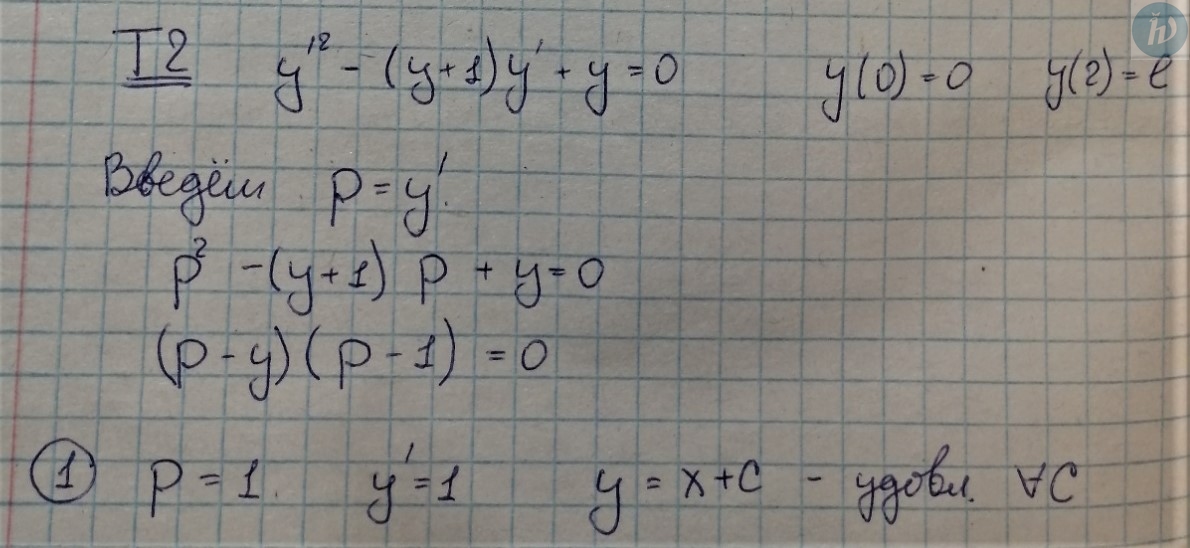 T2 y'² - (y+1)y' + y = 0 y(0) = 0 y(2) = e
Введём p = y'.
p² - (y+1) p + y = 0
(p - y)(p - 1) = 0
① p = 1. y' = 1 y = x + C - удовл. ∀C